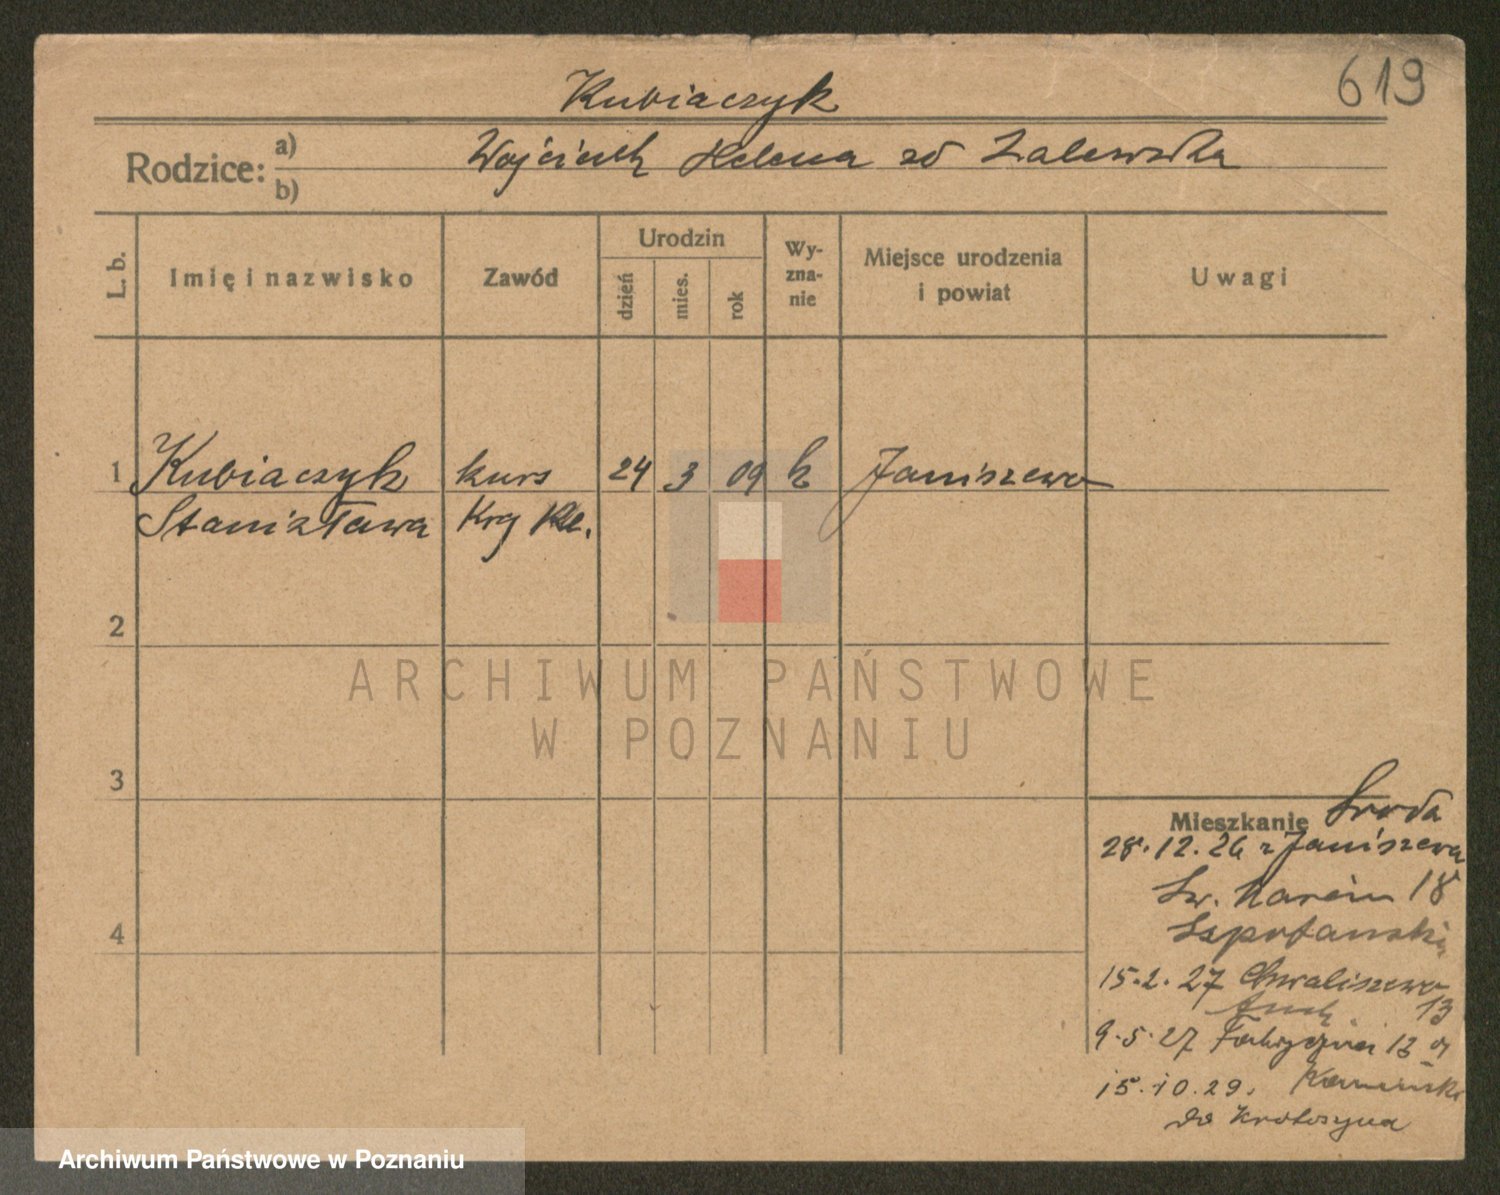 619
Kubiaczyk
Rodzice: a) b)
Wojciech Helena zd Zalewska
L. b.
Imię i nazwisko
Zawód
Urodzin
dzień
mies.
rok
Wy-
zna-
nie
Miejsce urodzenia
i powiat
Uwagi
1 Kubiaczyk kurs 24 3 09 k Janiszewo
Stanisława Krg
2
3
4
Mieszkanie Środa
28.12.26 z Janiszewa
Św. Marcin 18
15.2.27 Chwaliszewo
13
9.5.27 Fabryczna 13
15.10.29.
do Krotoszyna
ARCHIWUM PAŃSTWOWE
W POZNANIU
Archiwum Państwowe w Poznaniu